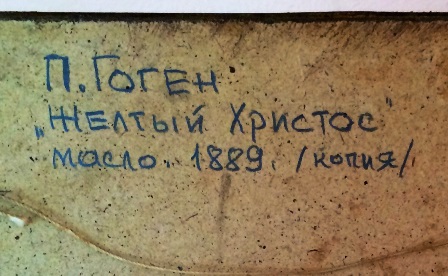 П. ГОГЕН
„ЖЕЛТЫЙ ХРИСТОС"
масло. 1889. /копия/